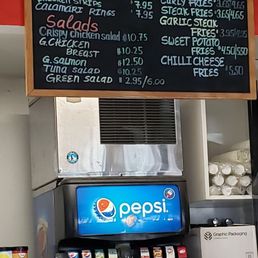 CHICKEN STRIPS $7.95
CALAMARI RINGS $7.95
Salads
Crispy chicken salad $10.75
G.CHICKEN
BREAST $10.25
G.SALMON $12.50
TUNA SALAD $10.25
GREEN SALAD $2.95/6.00
CURLY FRIES $3.65/4.65
STEAK FRIES $3.65/4.65
GARLIC STEAK
FRIES $3.95/4.95
SWEET POTATO
FRIES $4.50/5.50
CHILLI CHEESE
FRIES $5.50
pepsi
Graphic Packaging